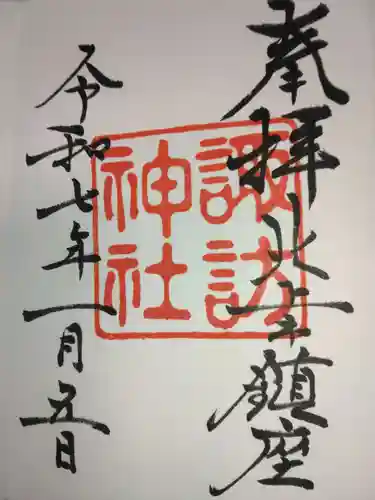 奉拝
鎮座
諏訪
神社
令和七年一月五日